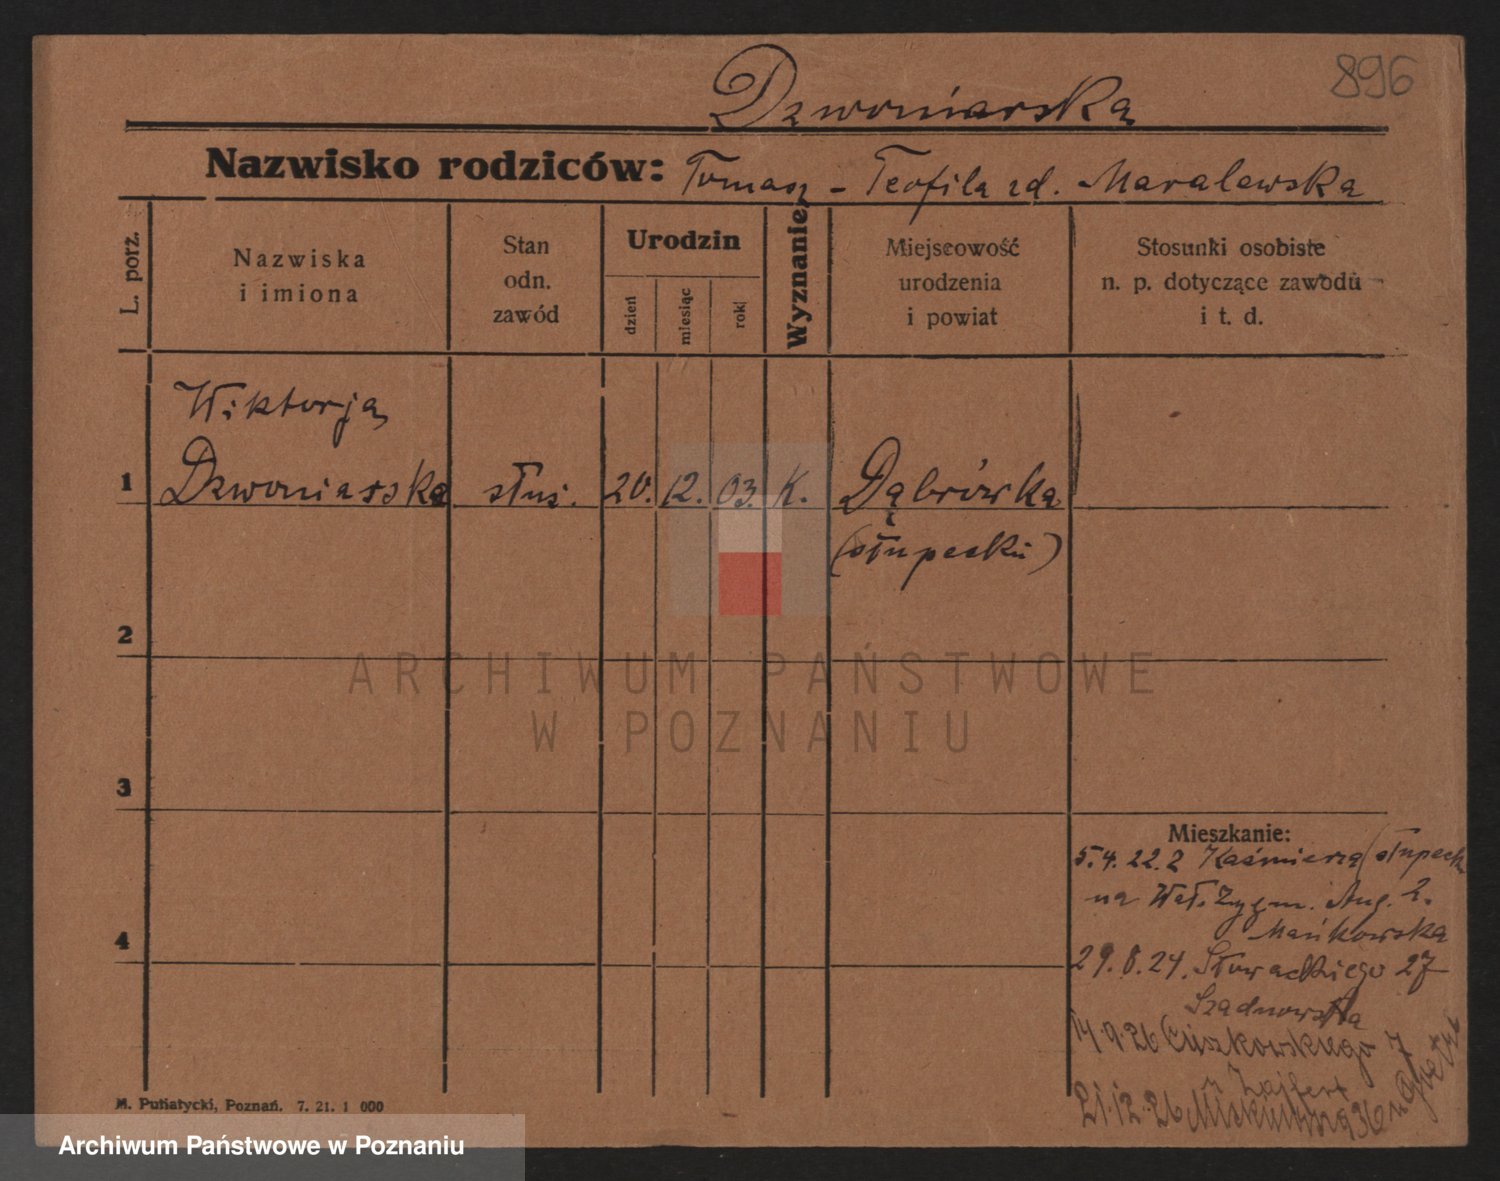 896
Dzwoniarska
Nazwisko rodziców: Tomasz - Teofila zd. Maralewska
L. porz.
Nazwiska
i imiona
Stan
odn.
zawód
Urodzin
dzień
miesiąc
rok
Wyznanie
Miejscowość
urodzenia
i powiat
Stosunki osobiste
n. p. dotyczące zawodu
i t. d.
Wiktorja
1 Dzwoniarska służ. 20. 12. 03. K. Dąbrówka
(słupecki)
2
ARCHIWUM PAŃSTWOWE
W POZNANIU
3
Mieszkanie:
5.4.22. z Kaźmierza (słupeck
na Wał. Zygm. Aug. 2.
Mańkowska
4
29.8.24. Słowackiego 27
14.9.26 7
u Zajfert
21.12.26 36
M. Putiatycki, Poznań. 7. 21. 1 000
Archiwum Państwowe w Poznaniu